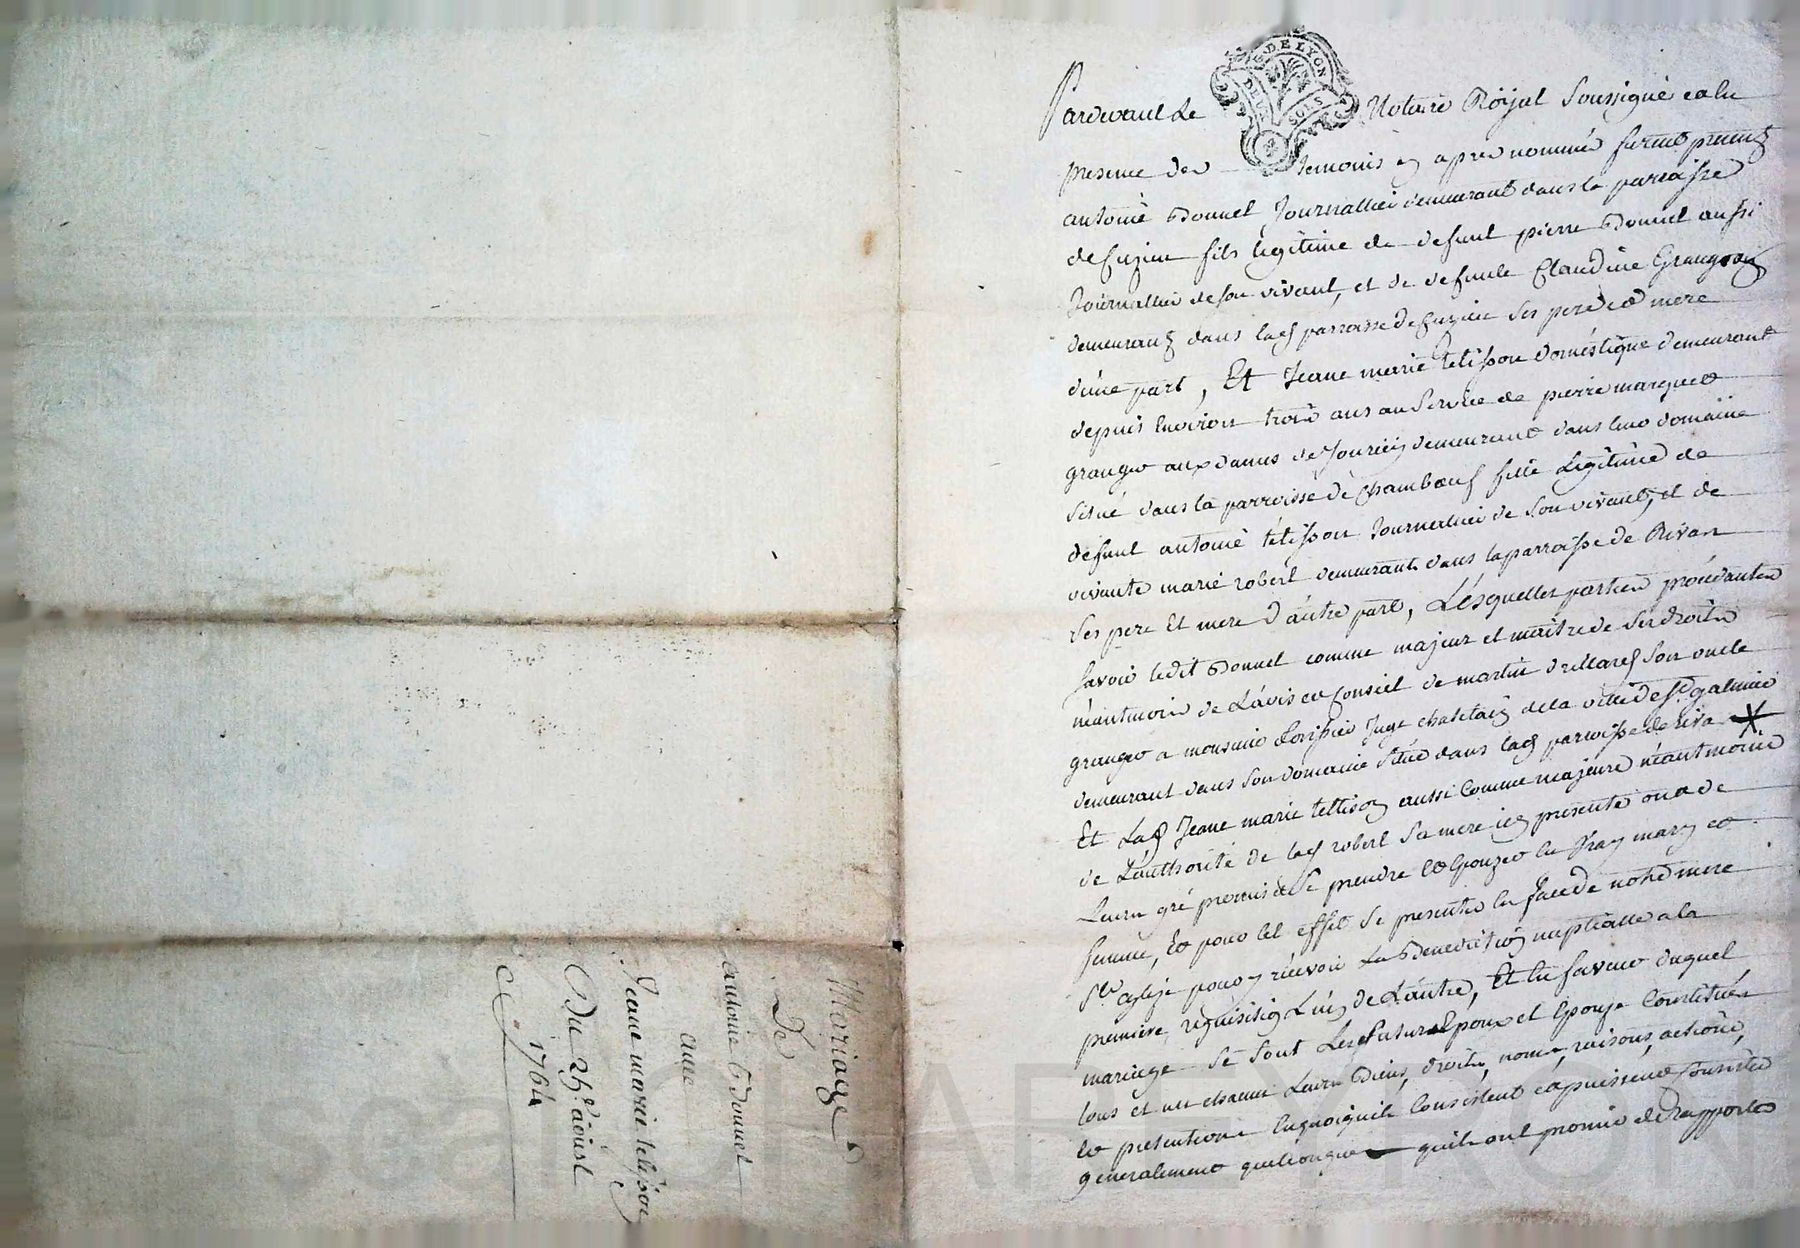 G. DE LYON
DEUX SOLS
Pardevant Le Notaire Royal Soussigné en la
presence des temoins cy apres nommés furent presents
antoine Bonnet Journallier demeurant dans la parroisse
de Cuzieu fils legitime de defunt pierre Bonnet aussi
Journallier de son vivant, et de defunte Claudine Grangeon
demeurants dans lad parroisse de Cuzieu ses pere et mere
d'une part, Et Jeane marie tetisson doméstique demeurant
depuis Environ trois ans au Service de pierre marquet
granger aux dames de Jourcey demeurant dans leur domaine
situé dans la parroisse de Chambœuf fille Legitime de
défunt antoine tétisson Journallier de son vivant, et de
vivante marie robert demeurant dans la parroisse de Rivas
ses pere Et mere d'autre part, Lésquelles parties procédantes
savoir ledit Bonnet comme majeur et maitre de ses droits
néantmoins de L'avis et Conseil de martin son oncle
granger a monsieur Juge chatelain de la ville de St galmier
demeurant dans son domaine Situé dans lad parroisse de riva
Et Lad Jeane marie tettison aussi Comme majeure néantmoins
de L'authorité de lad robert Sa mere icy presente ont de
Leurs gré promis de se prendre et Epouzer en vray mary et
femme, Et pour cet effet se presenter en face de notre mere
Ste eglize pour y recevoir La Benediction nuptialle a la
premiere requisition L'un de L'autre, Et en faveur duquel
mariage se sont Lesd futurs Epoux et Epouse Constitués
tous et un chacun Leurs Biens, droits, noms, raisons, actions,
et pretentions En quoiquils Consistent et puissent Consister
generalement quelconque quils ont promis de rapporter
Mariage
De
antoine Bonnet
avec
Jeane marie tetisson
Du 25e. aoust
1764